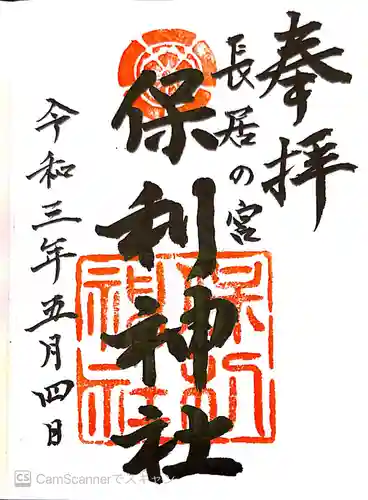 奉拝
長居の宮
保利神社
令和三年五月四日
保利
神社
CS CamScannerでスキャン